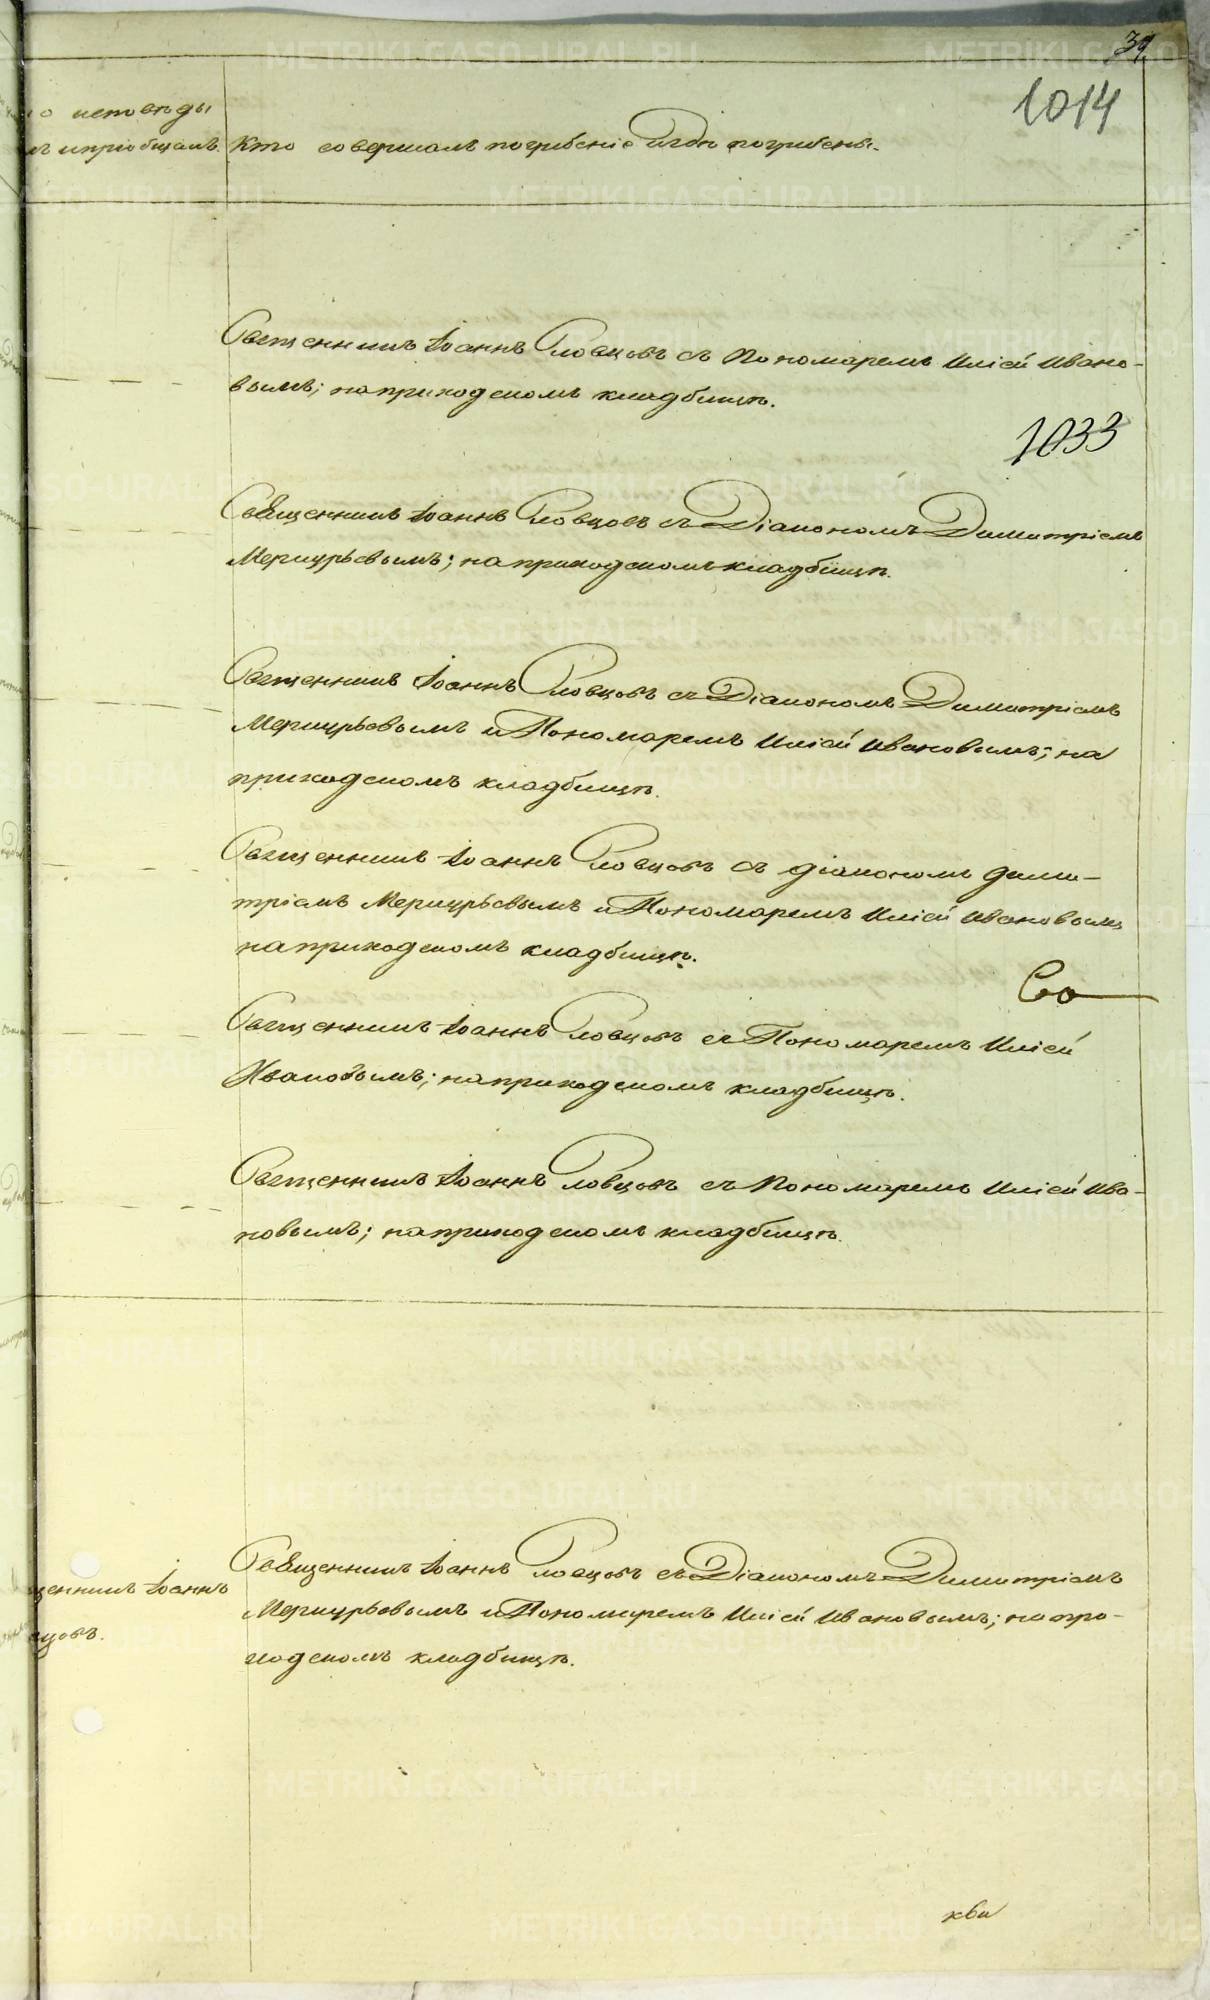 39
1014
исповѣды
и пріобщалъ.
Кто совершалъ погребеніе и гдѣ погребены.
Священникъ Іоаннъ Словцовъ съ Пономаремъ Иліей Ивано-
вымъ; на приходскомъ кладбищѣ.
1033
Священникъ Іоаннъ Словцовъ съ Діакономъ Димитріемъ
Меркурьевымъ; на приходскомъ кладбищѣ.
Священникъ Іоаннъ Словцовъ съ Діакономъ Димитріемъ
Меркурьевымъ и Пономаремъ Иліей Ивановымъ; на
приходскомъ кладбищѣ.
Священникъ Іоаннъ Словцовъ съ діакономъ Дими-
тріемъ Меркурьевымъ и Пономаремъ Иліей Ивановымъ
на приходскомъ кладбищѣ.
Со
Священникъ Іоаннъ Словцовъ съ Пономаремъ Иліей
Ивановымъ; на приходскомъ кладбищѣ.
Священникъ Іоаннъ Словцовъ съ Пономаремъ Иліей Ива-
новымъ; на приходскомъ кладбищѣ.
щенникъ Іоаннъ
цовъ.
Священникъ Іоаннъ Словцовъ съ Діакономъ Димитріемъ
Меркурьевымъ и Пономаремъ Иліей Ивановымъ; на при-
ходскомъ кладбищѣ.